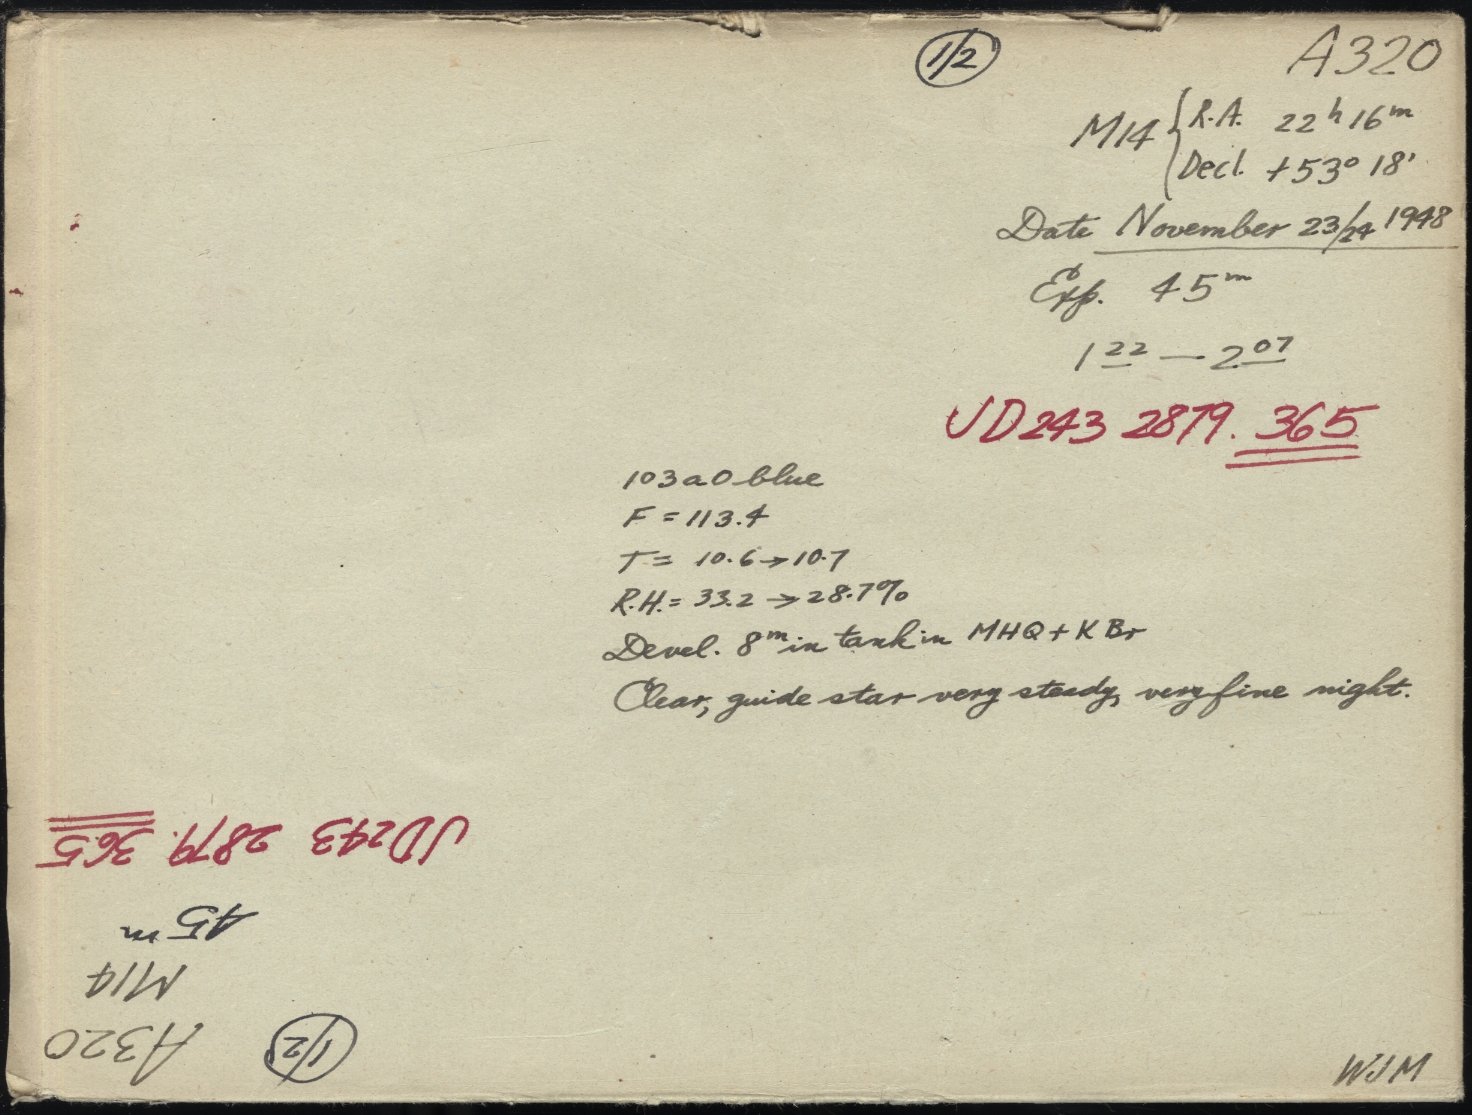 1/2
A320
M14 { R.A. 22h 16m
Decl. +53° 18'
Date November 23/24 1948
Exp. 45m
1 22 — 2 07
JD243 2879.365
103aO blue
F = 113.4
T = 10.6 → 10.7
R.H. = 33.2 → 28.7%
Devel. 8m in tank in MHQ + KBr
Clear, guide star very steady, very fine night.
JD243 2879.365
45m
M14
A320
1/2
WJM